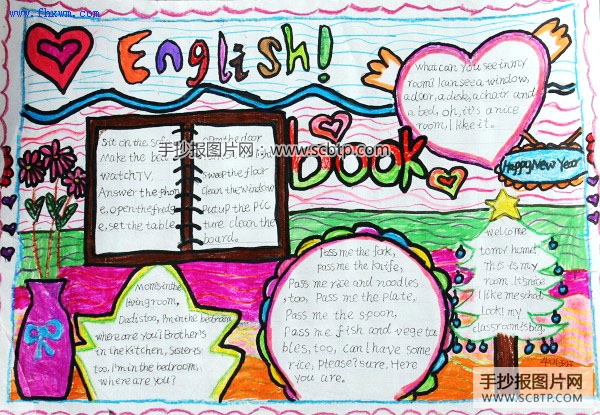 www.fhxwm.com
English!
What can you see in my
room? I can see a window,
a door, a desk, a chair and
a bed, oh, it's a nice
room, I like it.
book
Happy New Year
Sit on the sofa
Make the bed
watch TV.
Answer the phon
e, open the fridg
e, set the table
open the door
Sweep the floor
Clean the window
Put up the pic
ture clean the
board.
手抄报图片网
www.scbtp.com
Mom's in the
living room,
Dad is too, I'm in the bedroom
where are you? Brother's
in the kitchen, Sister's
too. I'm in the bedroom,
where are you?
Pass me the fork,
pass me the knife,
Pass me rice and noodles
, too, Pass me the plate,
Pass me the spoon,
Pass me fish and vegeta
bles, too, Can I have some
rice, Please? sure. Here
you are.
welcome
to my home!
This is my
room. It's nice
I like me school
Look! my
classroom is big,
手抄报图片网
WWW.SCBTP.COM